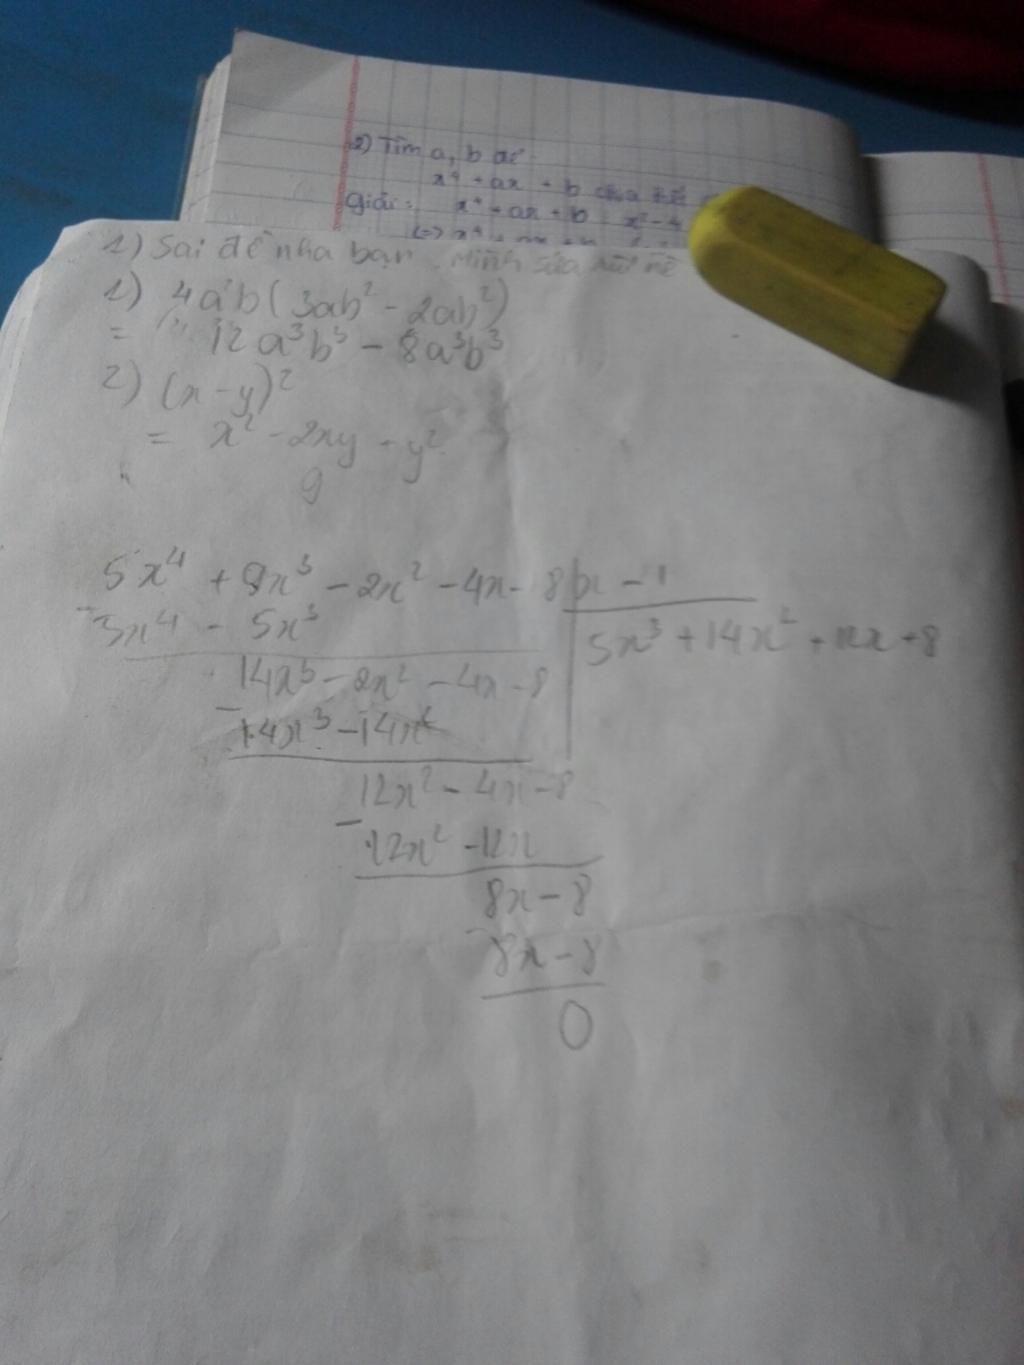 2) Tìm a, b để
x⁴ + ax + b chia hết
Giải: x⁴ + ax + b x² - 4
(=) x⁴ + ax + b
1) Sai đề nha bạn mình sửa
1) 4a²b(3ab² - 2ab²)
= 12a³b³ - 8a³b³
2) (x - y)²
= x² - 2xy - y²
5x⁴ + 9x³ - 2x² - 4x - 8 x - 1
5x⁴ - 5x³ 5x³ + 14x² + 12x + 8
14x³ - 2x² - 4x - 8
- 14x³ - 14x²
12x² - 4x - 8
- 12x² - 12x
8x - 8
8x - 8
0